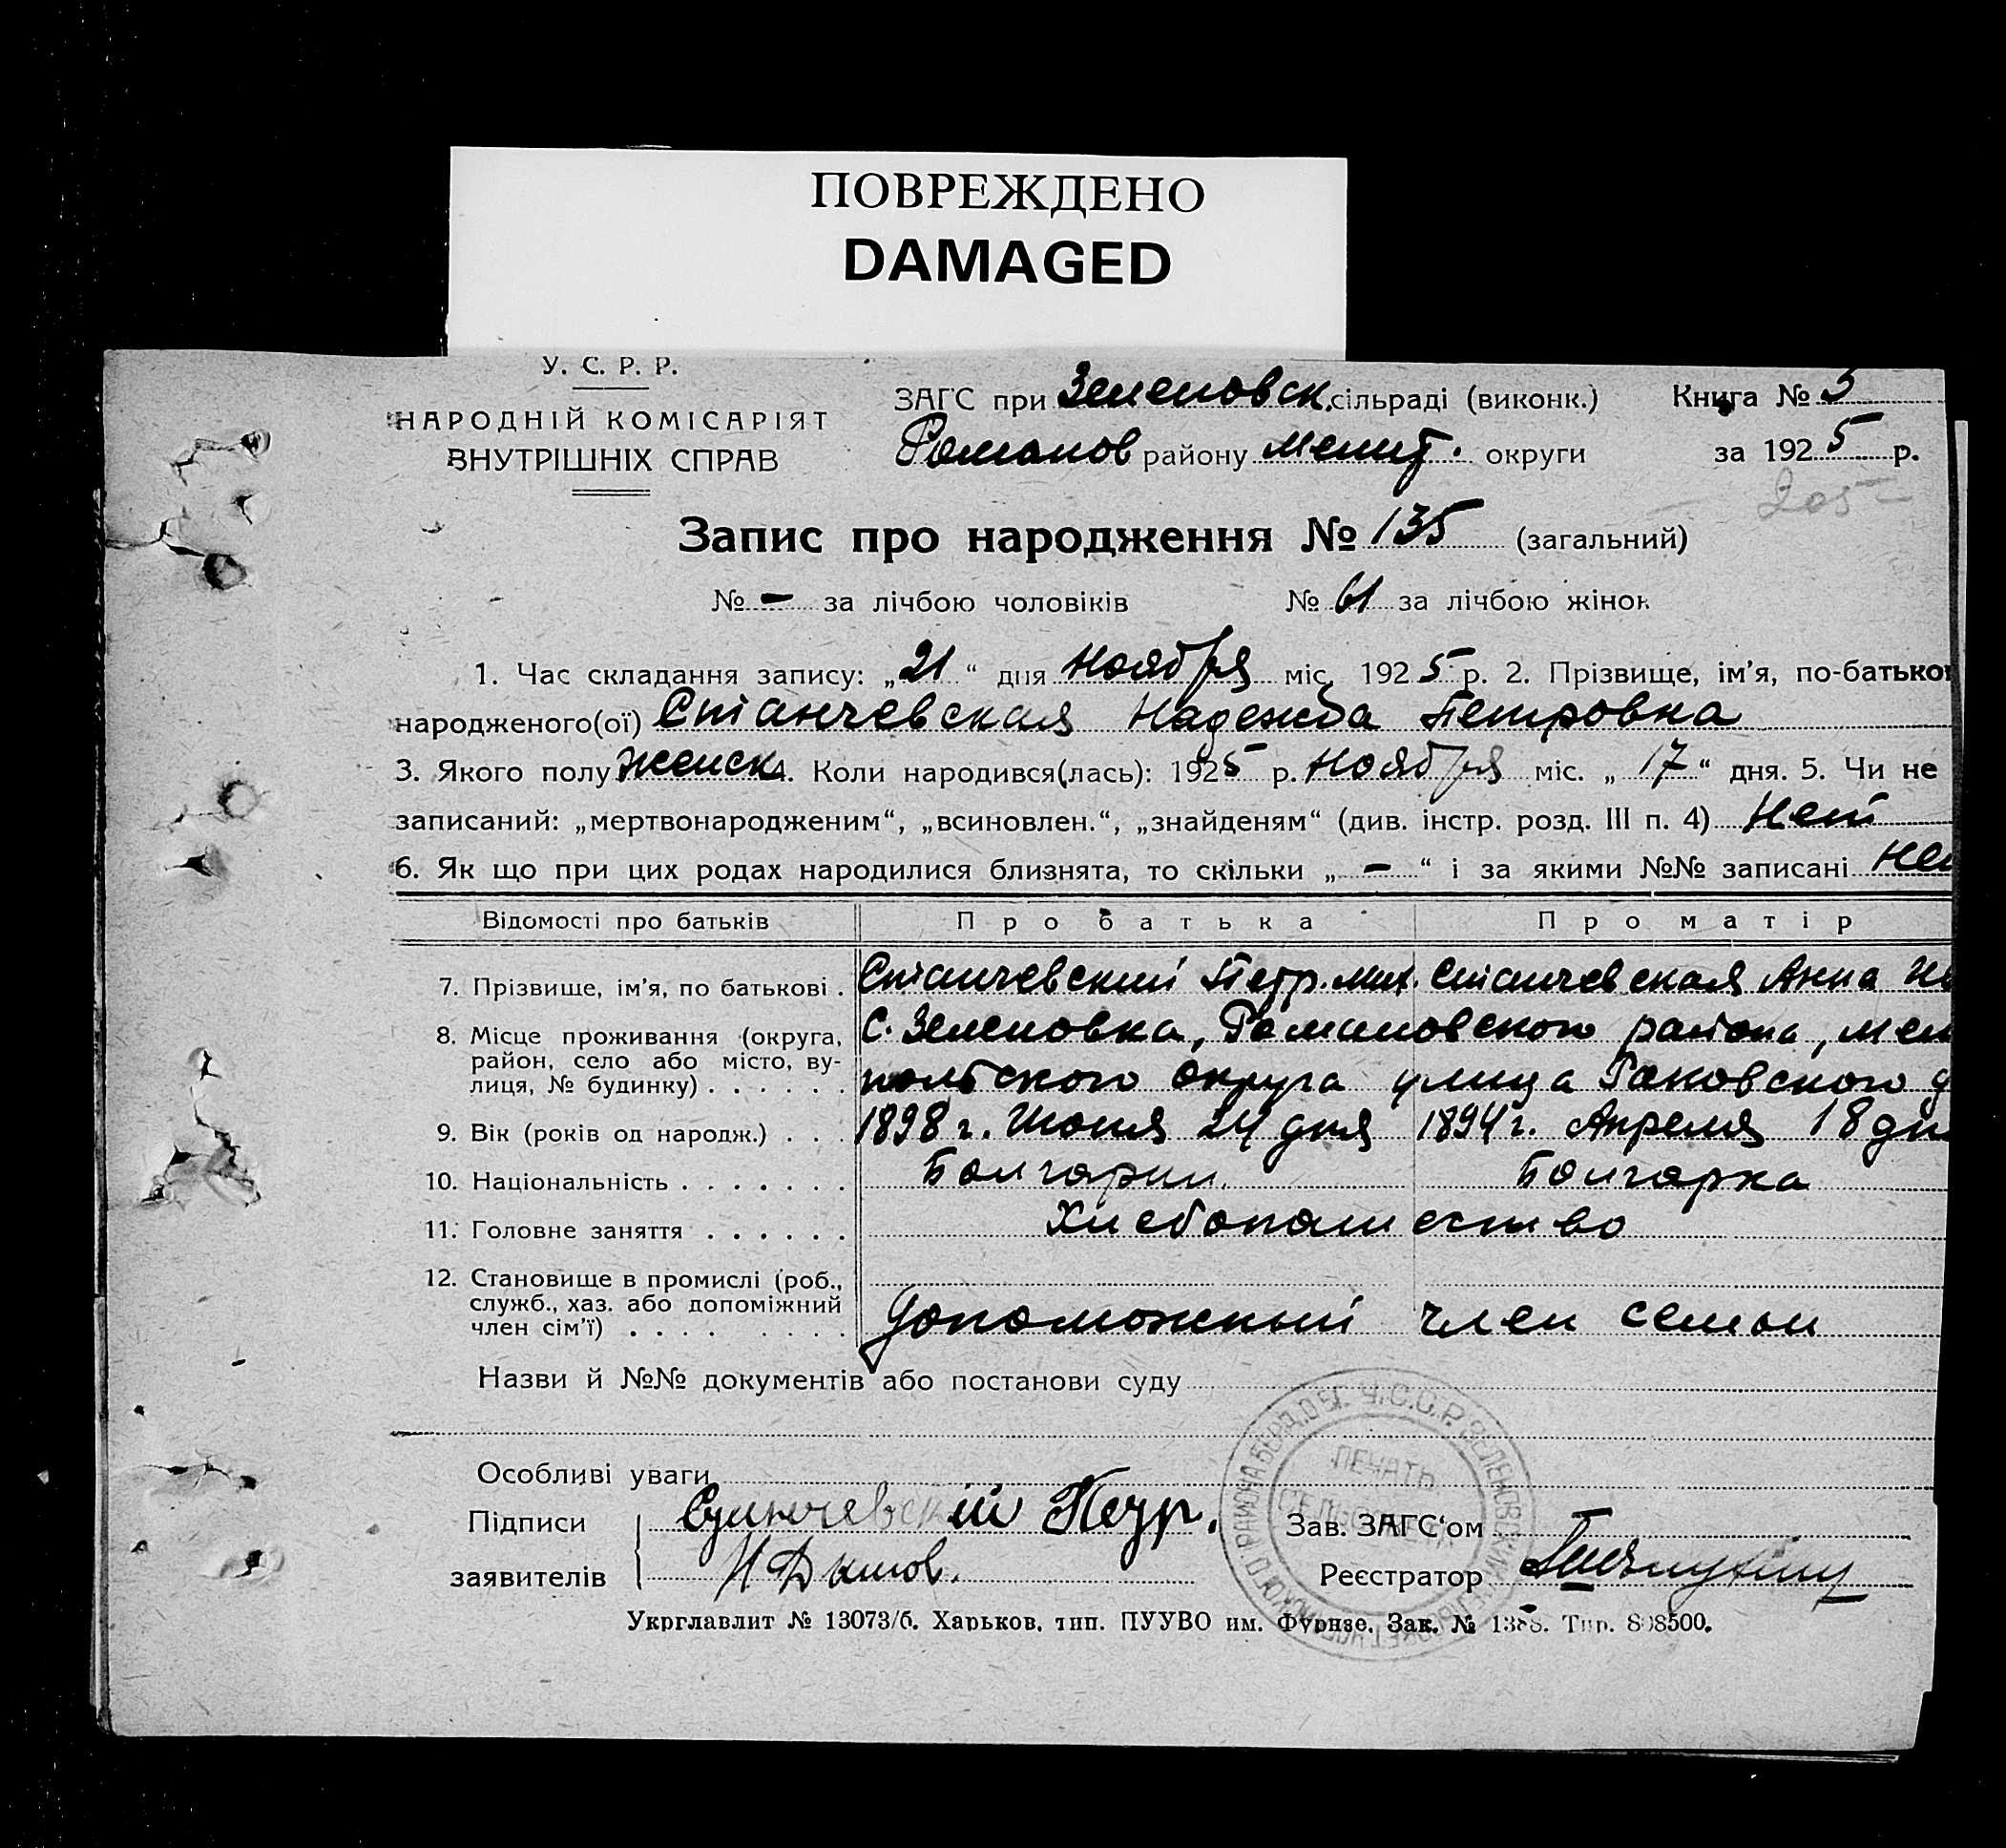 ПОВРЕЖДЕНО
DAMAGED
У. С. Р. Р.
НАРОДНІЙ КОМІСАРІЯТ
ВНУТРІШНІХ СПРАВ
ЗАГС при Зеленовск. сільраді (виконк.) Книга № 5
Романов району Мелит. округи за 1925 р.
205
Запис про народження № 135 (загальний)
№ - за лічбою чоловіків № 61 за лічбою жінок
1. Час складання запису: „21“ дня Ноября міс. 1925 р. 2. Прізвище, ім'я, по-батькові
народженого(ої) Станчевская Надежда Петровна
3. Якого полу женск 4. Коли народився(лась): 1925 р. Ноября міс. „17“ дня. 5. Чи не
записаний: „мертвонародженим“, „всиновлен.“, „знайденям“ (див. інстр. розд. III п. 4) Нет
6. Як що при цих родах народилися близнята, то скільки „-“ і за якими №№ записані Нет
Відомості про батьків Про батька Про матір
7. Прізвище, ім'я, по батькові . Станчевский Петр. Мих. Станчевская Анна
8. Місце проживання (округа, район, село або місто, вулиця, № будинку) . . . . . . С. Зеленовка, Романовского района, Мели
польского округа улица Раковского д
9. Вік (років од народж.) . . . 1898 г. Июня 24 дня 1894 г. Апреля 18 дн
10. Національність . . . . . . . Болгарин. Болгарка
11. Головне заняття . . . . . . Хлебопашество
12. Становище в промислі (роб., служб., хаз. або допоміжний член сім'ї) . . . . . . . . Допоможный член семьи
Назви й №№ документів або постанови суду
Особливі уваги
Підписи Сданчевский Петр. Зав. ЗАГС'ом
заявителів Н Дымов. Реєстратор
ПЕЧАТЬ
СЕЛЬСОВЕТА
Укрглавлит № 13073/б. Харьков. тип. ПУУВО им. Фрунзе. Зак. № 1388. Тир. 808500.